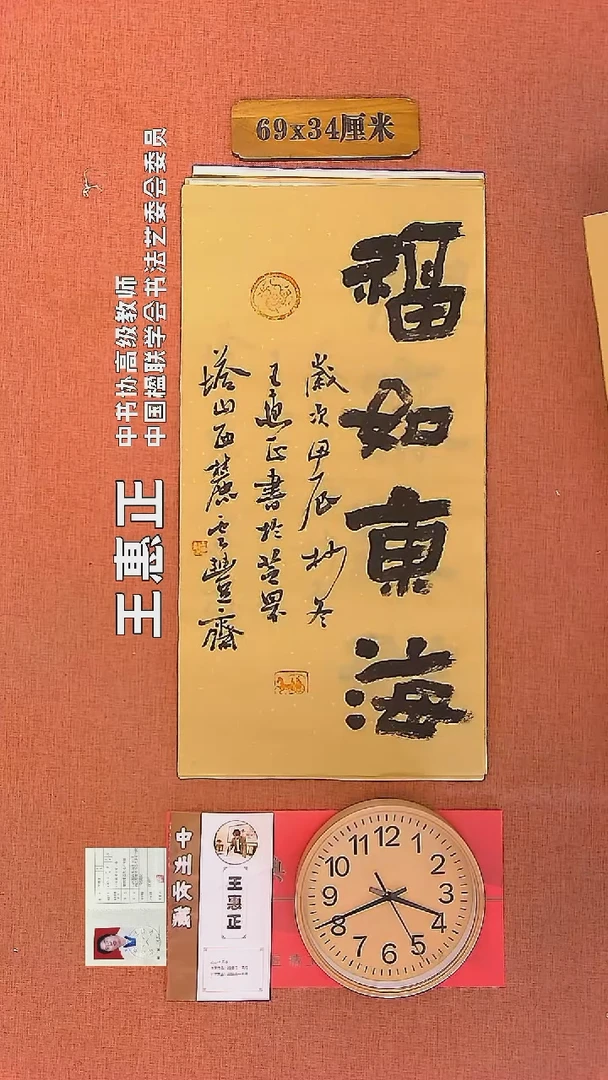 69x34厘米
中国楹联学会书法艺委会委员
中书协高级教师
王惠正
福如東海
歲次甲辰杪冬
王惠正書於芝罘
塔山西麓雲豐齋
中州收藏
王惠正
12
1
2
3
4
5
6
7
8
9
10
11